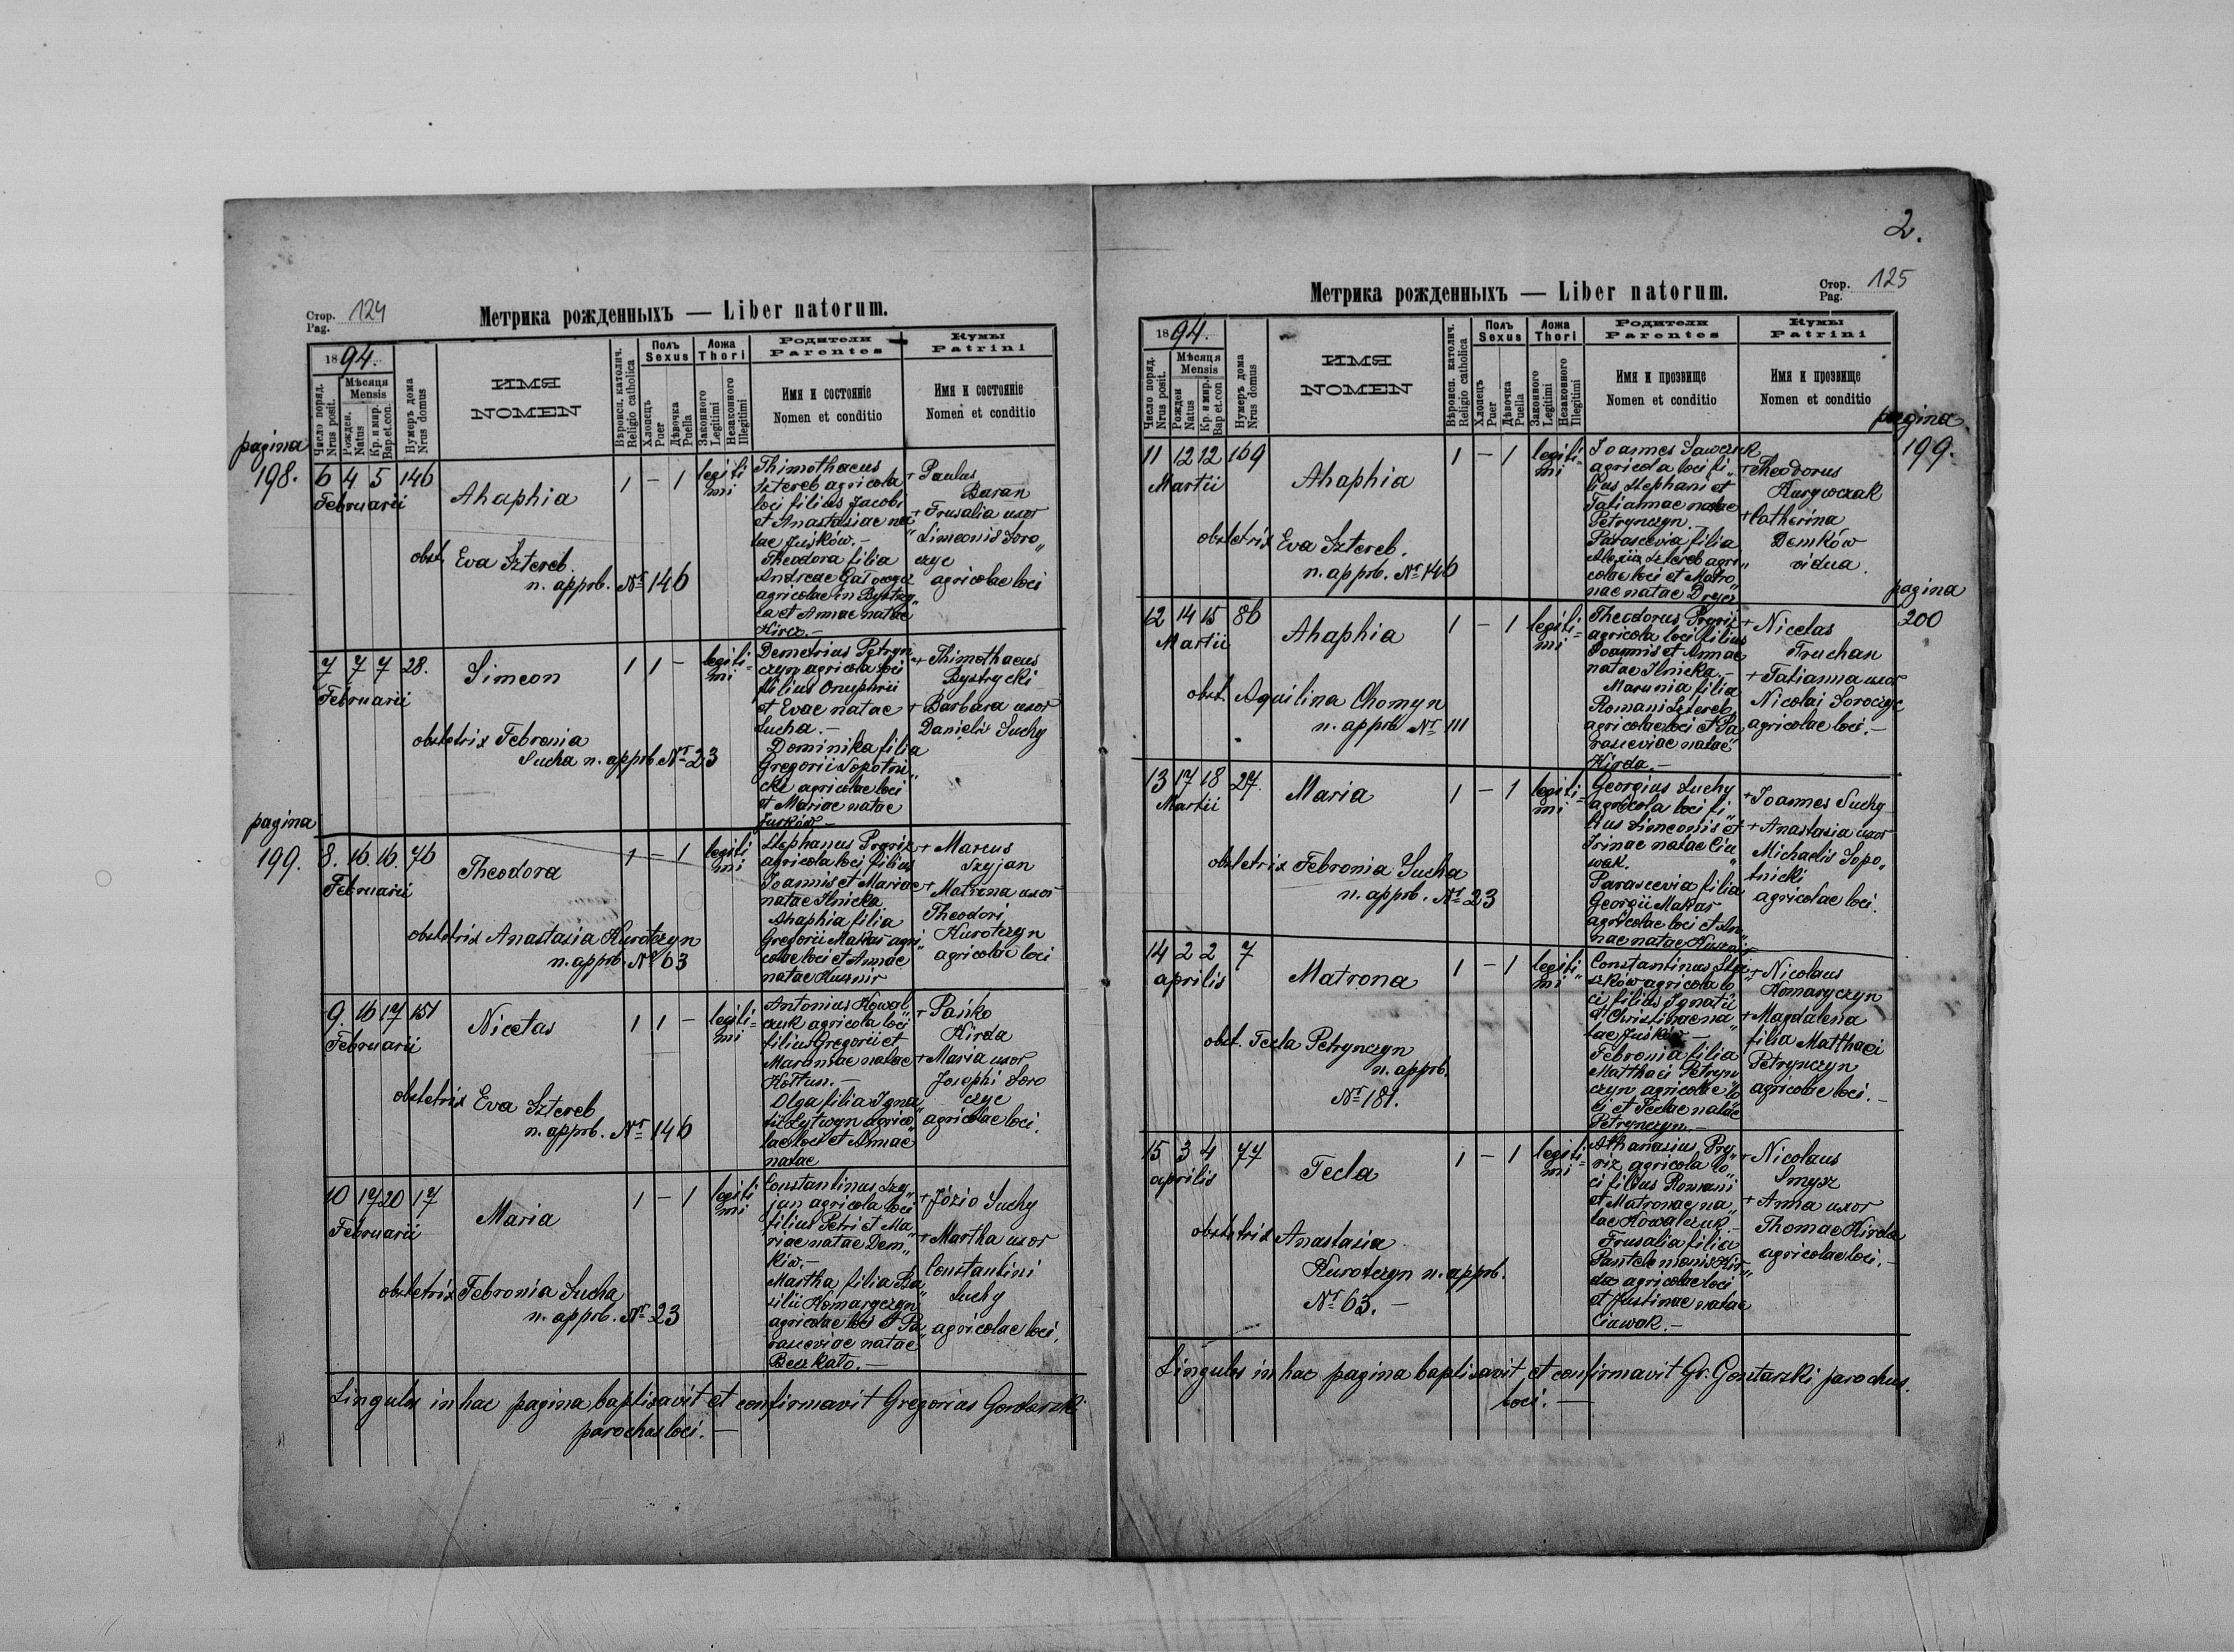 Стор. 124
Pag.
Метрика рожденныхъ — Liber natorum.
1894.
Число поряд.
Nrus posit.
Мѣсяця
Mensis
Рожден.
Natus
Кр. и мир.
Bap. et. con.
Нумеръ дома
Nrus domus
ИМЯ
NOMEN
Вѣроисп. католич.
Religio catholica
Полъ
Sexus
Хлопецъ
Puer
Дѣвочка
Puella
Ложа
Thori
Законного
Legitimi
Незаконного
Illegitimi
Родители
Parentes
Имя и состояніе
Nomen et conditio
Кумы
Patrini
Имя и состояніе
Nomen et conditio
pagina
198.
6 4 5 146
Februarii
Ahaphia
obst. Eva Sztereb.
n. approb. Nr 146
1 – 1
legiti
mi
Thimothaeus
Sztereb agricola
loci filius Jacobi
et Anastasiae na„
tae Juśków.–
Theodora filia
Andreae
agricolae in Bystry„
ca et Annae natae
Hirez.–
+ Paulus
Baran
+ Frusalia uxor
Simeonis Soro„
czyc
agricolae loci
7 7 7 28.
Februarii
Simeon
obstetrix Febronia
Sucha n. approb. Nr 23
1 1 –
legiti=
mi
Demetrius Petryn
czyn agricola loci
filius Onuphrii
et Evae natae
Sucha.–
Dominika filia
Gregorii Sopotni„
cki agricolae loci
et Mariae natae
Juśków–
+ Thimothaeus
Bystrycki
+ Barbara uxor
Danielis Suchy
pagina
199.
8. 16. 16. 76
Februarii
Theodora
obstetrix Anastasia Kurotczyn
n. approb. Nr 63
1 – 1
legiti
mi
Stephanus Pryriz
agricola loci filius
Joannis et Mariae
natae Ilnicka
Ahaphia filia
Gregorii Makar agri„
colae loci et Annae
natae Kusznir
+ Marcus
Szyjan
+ Matrona uxor
Theodori
Kurotczyn
agricolae loci
9. 16 17 151
Februarii
Nicetas
obstetrix Eva Sztereb
n. approb. Nr 146
1 1 –
legiti=
mi
Antonius Kowal„
czuk agricola loci
filius Gregorii et
Maruniae natae
Kołtun.–
Olga filia Igna„
tii Lytwyn agrico„
lae loci et Annae
natae
+ Pańko
Hirda
+ Maria uxor
Josephi Soro
czyc
agricolae loci.
10 17 20 17
Februarii
Maria
obstetrix Febronia Sucha
n. approb. Nr 23
1 – 1
legiti
mi
Constantinus Szy„
jan agricola loci
filius Petri et Ma„
riae natae Dem„
kiw.–
Martha filia Ba„
silii Komaryczyn
agricolae loci et Pa„
rasceviae natae
Beczkało.–
+ Józio Suchy
+ Martha uxor
Constantini
Suchy
agricolae loci.
Singulos in hac pagina baptisavit et confirmavit Gregorius Gontarzki
parochus loci.–
2.
Стор. 125
Pag.
Метрика рожденныхъ — Liber natorum.
1894.
Число поряд.
Nrus posit.
Мѣсяця
Mensis
Рожден
Natus
Кр. и мир.
Bap. et. con
Нумеръ дома
Nrus domus
ИМЯ
NOMEN
Вѣроисп. католич.
Religio catholica
Полъ
Sexus
Хлопецъ
Puer
Дѣвочка
Puella
Ложа
Thori
Законного
Legitimi
Незаконного
Illegitimi
Родители
Parentes
Имя и прозвище
Nomen et conditio
Кумы
Patrini
Имя и прозвище
Nomen et conditio
pagina
199.
11 12 12 169
Martii
Ahaphia
obstetrix Eva Sztereb.
n. approb. Nr 146
1 – 1
legiti=
mi
Joannes Sawczuk
agricola loci fi„
lius Stephani et
Tatiannae natae
Petrynczyn.–
Parascevia filia
Alexii Sztereb agri„
colae loci et Matro„
nae natae Drycz
+ Theodorus
Kurywczak
+ Catherina
Demków
vidua.
pagina
200
12 14 15 86
Martii
Ahaphia
obst. Aquilina Chomyn
n. approb Nr 111
1 – 1
legiti=
mi
Theodorus Pryriz
agricola loci filius
Joannis et Annae
natae Ilnicka.–
Marunia filia
Romani Sztereb
agricolae loci et Pa„
rasceviae natae
Hirda.–
+ Nicetas
Truchan
+ Tatianna uxor
Nicolai Soroczyc
agricolae loci.–
13 17 18 27.
Martii
Maria
obstetrix Febronia Sucha
n. approb. Nr 23
1 – 1
legiti=
mi
Georgius Suchy
agricola loci fi„
lius Simeonis et
Irinae natae Ciu„
wak.
Parascevia filia
Georgii Makar
agricolae loci et An„
nae natae Kusznir
+ Joannes Suchy
+ Anastasia uxor
Michaelis Sopo„
tnicki
agricolae loci.
14 2 2 7
aprilis
Matrona
obst. Tecla Petrynczyn
n. approb.
Nr 181.
1 – 1
legiti„
mi
Constantinus
agricola lo
ci filius Ignatii
et Christinae na„
tae Juśków.–
Febronia filia
Matthaei Petryn„
czyn agricolae lo
ci et Teclae natae
Petrynczyn.–
+ Nicolaus
Komaryczyn
+ Magdalena
filia Matthaei
Petrynczyn
agricolae loci.–
15 3 4 77
aprilis
Tecla
obstetrix Anastasia
Kurotczyn n. approb.
Nr 63.–
1 – 1
legiti=
mi
Athanasius Pry„
riz agricola lo„
ci filius Romani
et Matronae na„
tae Kowalczuk.–
Frusalia filia
Pantelemonis Hir„
da agricolae loci
et Justinae natae
Ciuwak.–
+ Nicolaus
Smysz
+ Anna uxor
Thomae Hirda
agricolae loci.–
Singulos in hac pagina baptisavit et confirmavit Gr. Gontarzki parochus.
loci.–